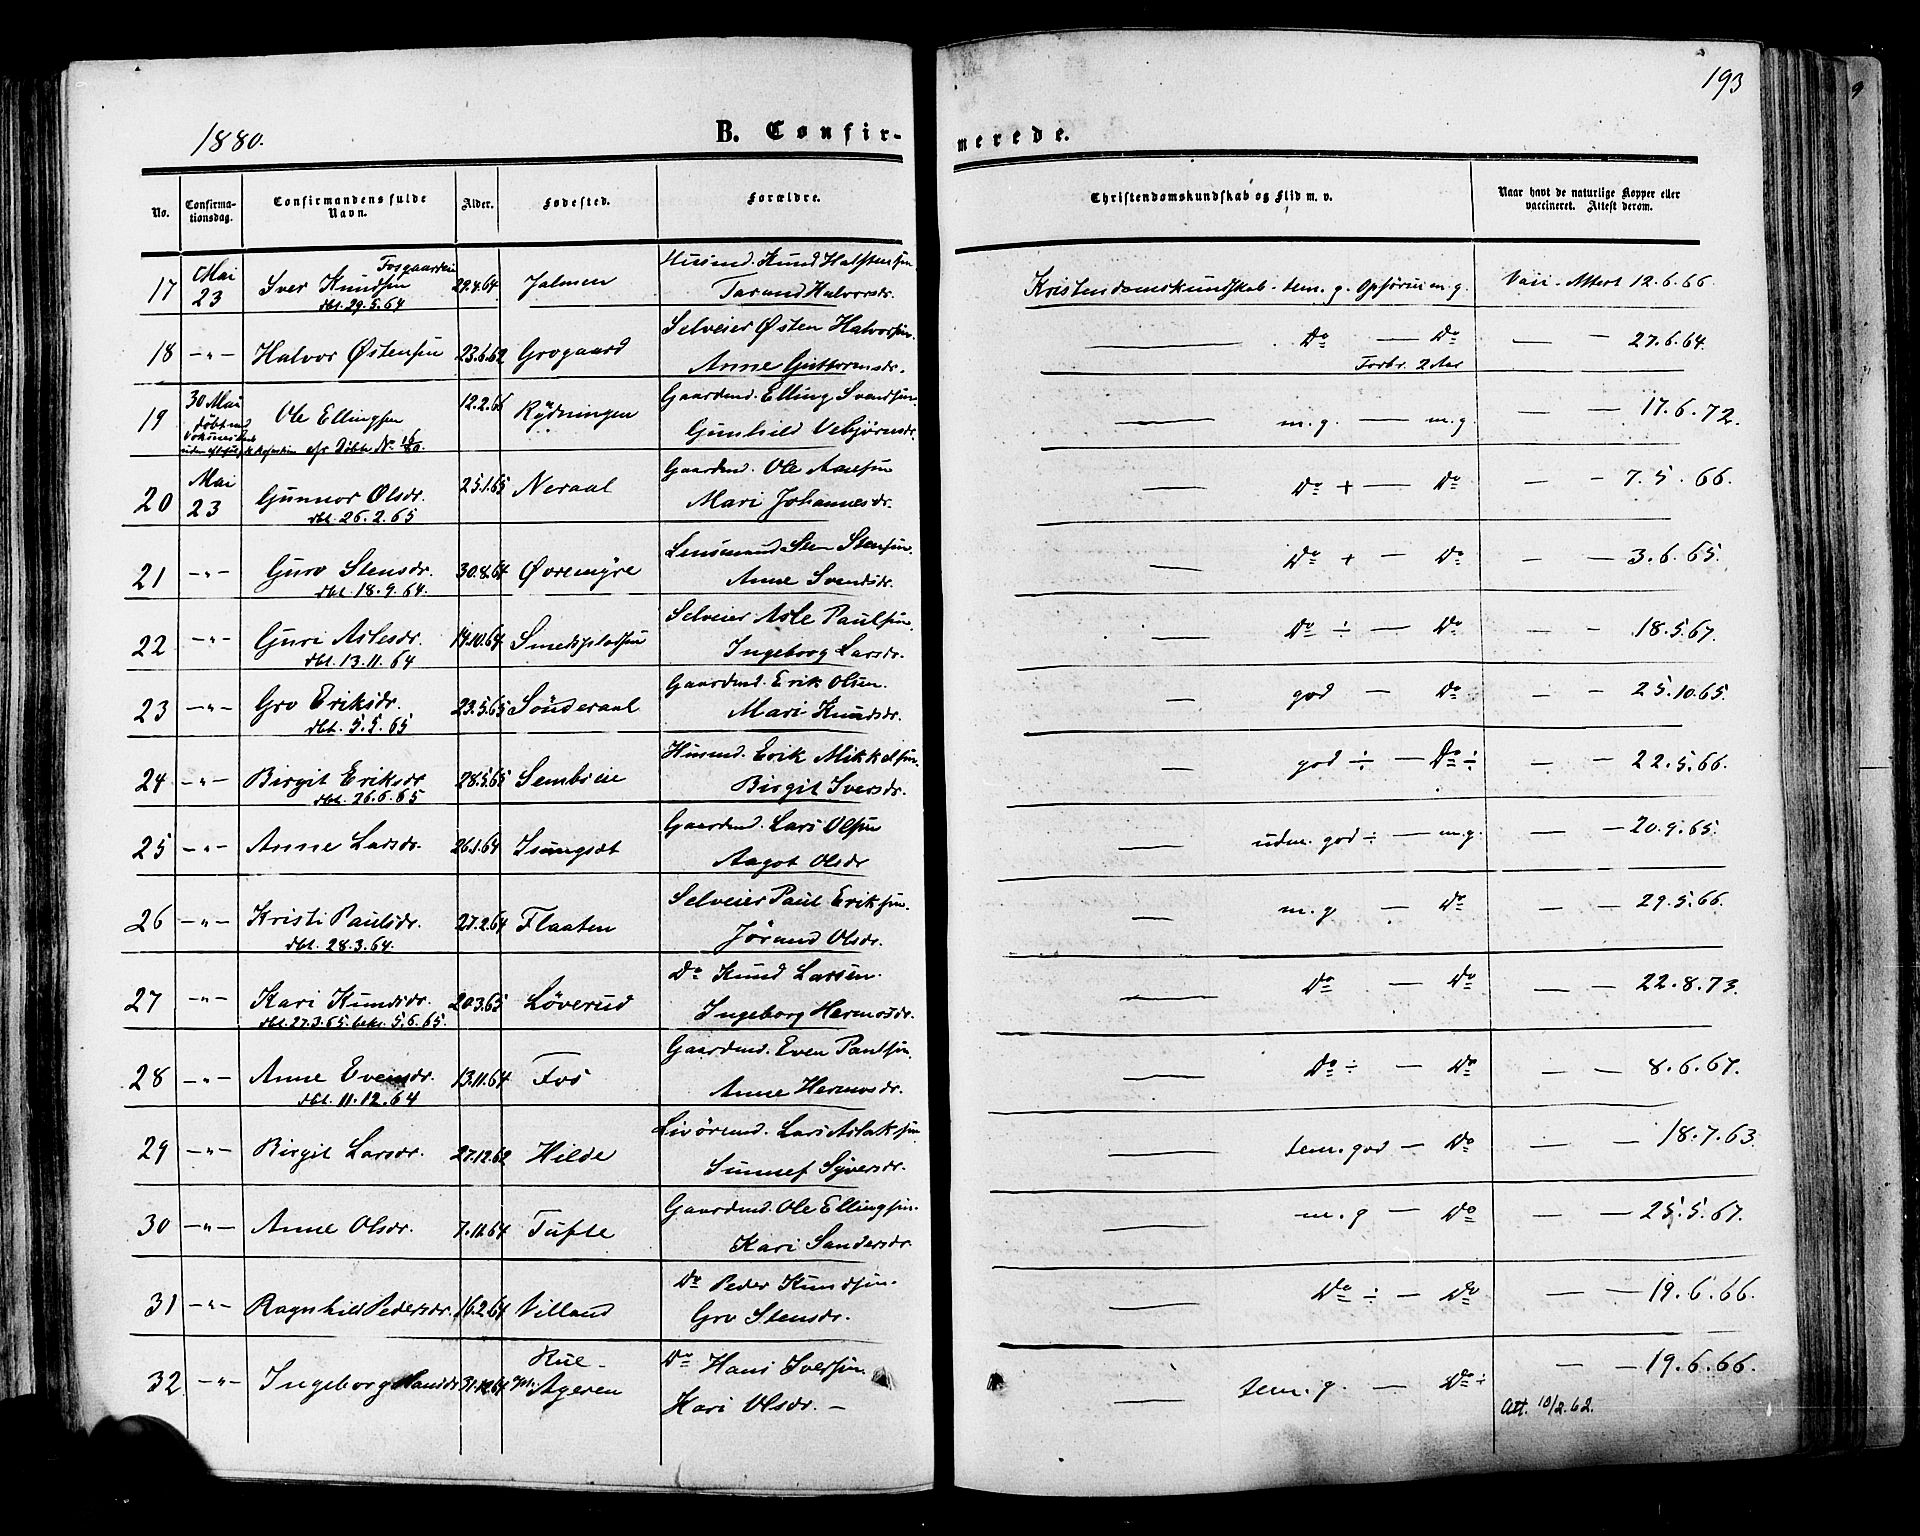 193
1880.
B. Confir-
merede.
No.
Confirma-
tionsdag.
Confirmandens fulde
Navn.
Alder.
Fødested.
Forældre.
Christendomskundskab og Flid m. v.
Naar havt de naturlige Kopper eller
vaccineret. Attest derom.
17 Mai 23 Iver Knudsen Fosgaardeie 29.4.64 Jalmen Husmd. Knud Halstensen Kristendomskundskab tem. g. Opførsel m. g. Vacc. Attest 12.6.66.
dbt. 29.5.64 Tarand Halvorsdr.
18 -"- Halvor Østensen 23.6.62 Grogaard Selveier Østen Halvorsen Do — Do — — 27.6.64.
Anne Guttormsdr. Forbr. 2 Aar
19 30 Mai Ole Ellingsen 12.2.66 Rydningen Gaardmd. Elling Svendsen — m. g. — m. g. — — 17.6.72.
døbt med Gunhild Vebjørnsdr.
cfr Døbte No 16/80.
20 Mai 23 Gunnor Olsdr. 25.1.65 Neraal Gaardmd. Ole — Do + — Do — — 7.5.66.
dbt. 26.2.65 Mari Johannesdr.
21 -"- Guro Stensdr. 30.8.64 Øvremyre Lensmand Sten Stensen — Do + — Do — — 3.6.65.
dbt. 18.9.64. Anne Svendsdr.
22 -"- Guri Aslesdr. 14.10.64 Smedspladsen Selveier Asle Paulsen — Do ÷ — Do — — 18.5.67.
dbt. 13.11.64 Ingeborg Larsdr.
23 -"- Gro Eriksdr. 23.5.65 Sønderaal Gaardmd. Erik Olsen — god — Do — — 25.10.65
dbt. 5.5.65 Mari Knudsdr.
24 -"- Birgit Eriksdr 28.5.65 Sembseie Husmd. Erik Mikkelsen — god ÷ — Do ÷ — — 22.5.66.
dbt. 26.6.65 Birgit Iversdr.
25 -"- Anne Larsdr. 26.1.64 Isungset Gaardmd. Lars Olsen — udm. god ÷ — m. g. — — 20.9.65.
Aagot Olsdr
26 -"- Kristi Paulsdr. 27.2.64 Flaaten Selveier Paul Eriksen. — m. g — Do — — 29.5.66.
dbt. 28.3.64. Jørand Olsdr.
27 -"- Kari Knudsdr. 20.3.65 Løverud Do Knud Larsen. — Do — Do — — 22.8.73.
dbt. 27.3.65. bekr. 5.6.65. Ingeborg Hermosdr.
28 -"- Anne Evensdr. 13.11.64 Fos Gaardmd. Even Paulsen. — Do ÷ — Do — — 8.6.67.
dbt. 11.12.64 Anne Hermosdr.
29 -"- Birgit Larsdr. 27.12.62 Hilde Livørmd. Lars Aslaksen — tem. god — Do — — 18.7.63.
Sunnef Syversdr.
30 -"- Anne Olsdr. 7.11.64 Tufte Gaardmd. Ole Ellingsen. — m. g — Do — — 25.5.67.
Kari Sandersdr.
31 -"- Ragnhild Pedersdr. 16.2.64 Villand Do Peder Knudsen. — Do ÷ — Do — — 19.6.66.
Gro Stensdr.
32 -"- Ingeborg Hansdr 31.12.64 Rue- Do Hans Iversen — tem. g. — Do ÷ — — 19.6.66.
Ageren Kari Olsdr. —
Att. 10/2.62.